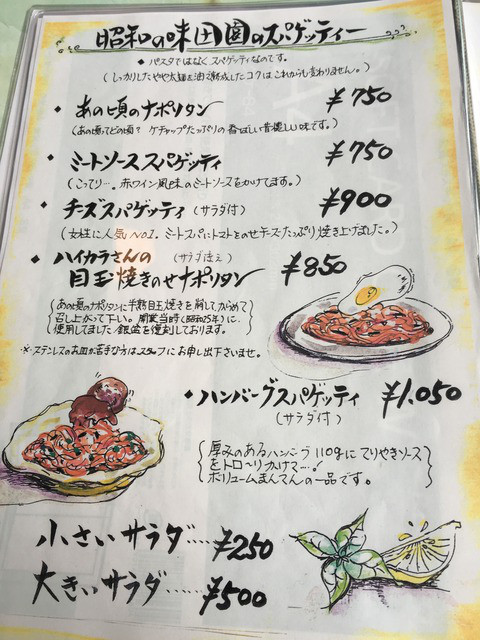 昭和の味田園のスパゲッティー
◆ パスタではなく スパゲッティなのです。
(しっかりしたやや太麺を油で熟成したコクは これからも変わりません。)
◆ あの頃のナポリタン ¥750
(あの頃ってどの頃? ケチャップたっぷりの 香ばしい昔懐しい味です。)
◆ ミートソーススパゲッティ ¥750
(こってり…。赤ワイン風味のミートソースをかけてます。)
◆ チーズスパゲッティ (サラダ付) ¥900
(女性に人気No.1. ミートスパにトマトをのせチーズたっぷり焼き上げました。)
◆ ハイカラさんの (サラダ添え)
目玉焼きのせナポリタン ¥850
あの頃のナポリタンに半熟目玉焼きを崩してからめて
召し上がって下さい。開業当時(昭和25年)に
使用してました 銀盆を復刻しております。
※・ステンレスのお皿が苦手な方はスタッフにお申し出下さいませ。
◆ ハンバーグスパゲッティ ¥1,050
(サラダ付)
厚みのあるハンバーグ110gに てりやきソース
をトロ〜リかけて…!
ボリュームまんてんの一品です。
小さいサラダ…‥¥250
大きいサラダ……¥500